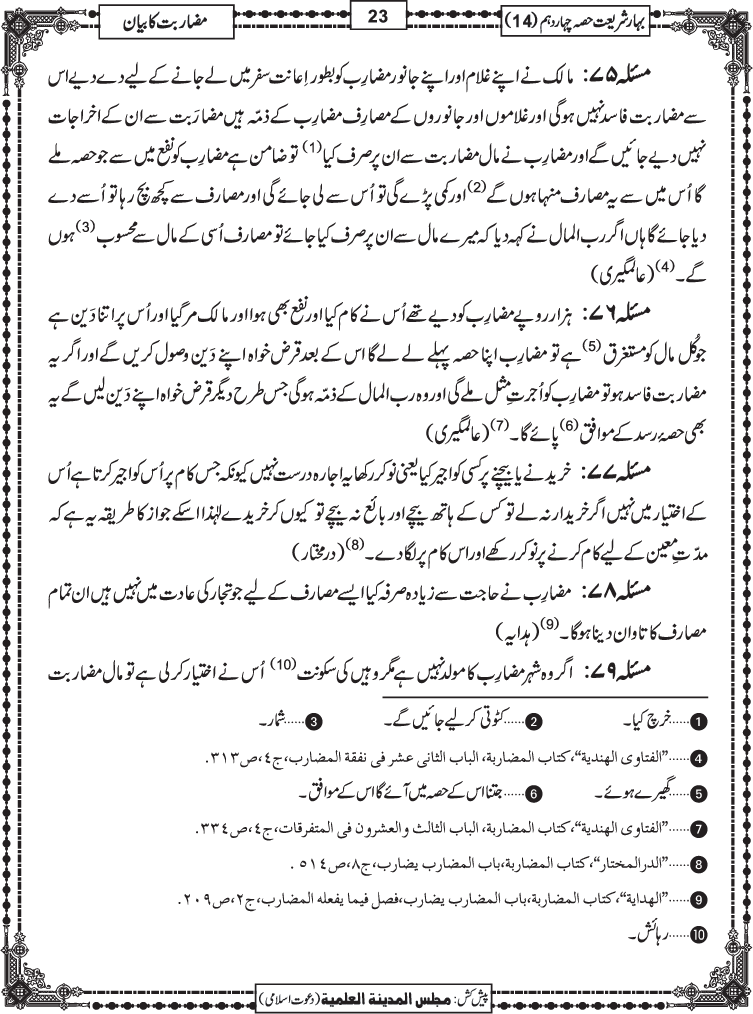 بہار شریعت حصہ چہاردہم (14)
23
مضاربت کا بیان
مسئلہ ۷۵: مالک نے اپنے غلام اور اپنے جانور مضارِب کو بطورِ اِعانت سفر میں لے جانے کے لیے دے دیے اس
سے مضاربت فاسد نہیں ہوگی اور غلاموں اور جانوروں کے مصارِف مضارِب کے ذمّہ ہیں مضارَبت سے ان کے اخراجات
نہیں دیے جائیں گے اور مضارِب نے مال مضاربت سے ان پر صرف کیا(1) تو ضامن ہے مضارِب کو نفع میں سے جو حصہ ملے
گا اُس میں سے یہ مصارف منہا ہوں گے(2) اور کمی پڑے گی تو اُس سے لی جائے گی اور مصارف سے کچھ بچ رہا تو اُسے دے
دیا جائے گا ہاں اگر رب المال نے کہہ دیا کہ میرے مال سے ان پر صرف کیا جائے تو مصارف اُسی کے مال سے محسوب(3) ہوں
گے۔(4) (عالمگیری)
مسئلہ ۷۶: ہزار روپے مضارِب کو دیے تھے اُس نے کام کیا اور نفع بھی ہوا اور مالک مر گیا اور اُس پر اتنا دَین ہے
جو کُل مال کو مستغرق(5) ہے تو مضارِب اپنا حصہ پہلے لے لے گا اس کے بعد قرض خواہ اپنے دَین وصول کریں گے اور اگر یہ
مضاربت فاسد ہو تو مضارِب کو اُجرتِ مثل ملے گی اور وہ رب المال کے ذمّہ ہوگی جس طرح دیگر قرض خواہ اپنے دَین لیں گے یہ
بھی حصۂ رسد کے موافق(6) پائے گا۔(7) (عالمگیری)
مسئلہ ۷۷: خریدنے یا بیچنے پر کسی کو اجیر کیا یعنی نوکر رکھا یہ اجارہ درست نہیں کیونکہ جس کام پر اُس کو اجیر کرتا ہے اُس
کے اختیار میں نہیں اگر خریدار نہ لے تو کس کے ہاتھ بیچے اور بائع نہ بیچے تو کیوں کر خریدے لہٰذا اسکے جواز کا طریقہ یہ ہے کہ
مدّتِ معین کے لیے کام کرنے پر نوکر رکھے اور اس کام پر لگا دے۔(8) (درمختار)
مسئلہ ۷۸: مضارِب نے حاجت سے زیادہ صرفہ کیا ایسے مصارف کے لیے جو تجار کی عادت میں نہیں ہیں ان تمام
مصارف کا تاوان دینا ہوگا۔(9) (ہدایہ)
مسئلہ ۷۹: اگر وہ شہر مضارِب کا مولد نہیں ہے مگر وہیں کی سکونت(10) اُس نے اختیار کر لی ہے تو مال مضاربت
1......خرچ کیا۔ 2......کٹوتی کرلیے جائیں گے۔ 3......شمار۔
4......"الفتاوی الهندية"، کتاب المضاربة، الباب الثانی عشر فی نفقة المضارب، ج٤،ص٣١٣.
5......گھیرے ہوئے۔ 6......جتنا اس کے حصہ میں آئے گا اس کے موافق۔
7......"الفتاوی الهندية"، کتاب المضاربة، الباب الثالث والعشرون فی المتفرقات، ج٤،ص٣٣٤.
8......"الدرالمختار"، کتاب المضاربة، باب المضارب یضارب، ج٨،ص٥١٤ .
9......"الهداية"، کتاب المضاربة، باب المضارب یضارب، فصل فیما یفعله المضارب، ج٢،ص٢٠٩.
10......رہائش۔
پیش کش: مجلس المدینة العلمیة (دعوتِ اسلامی)